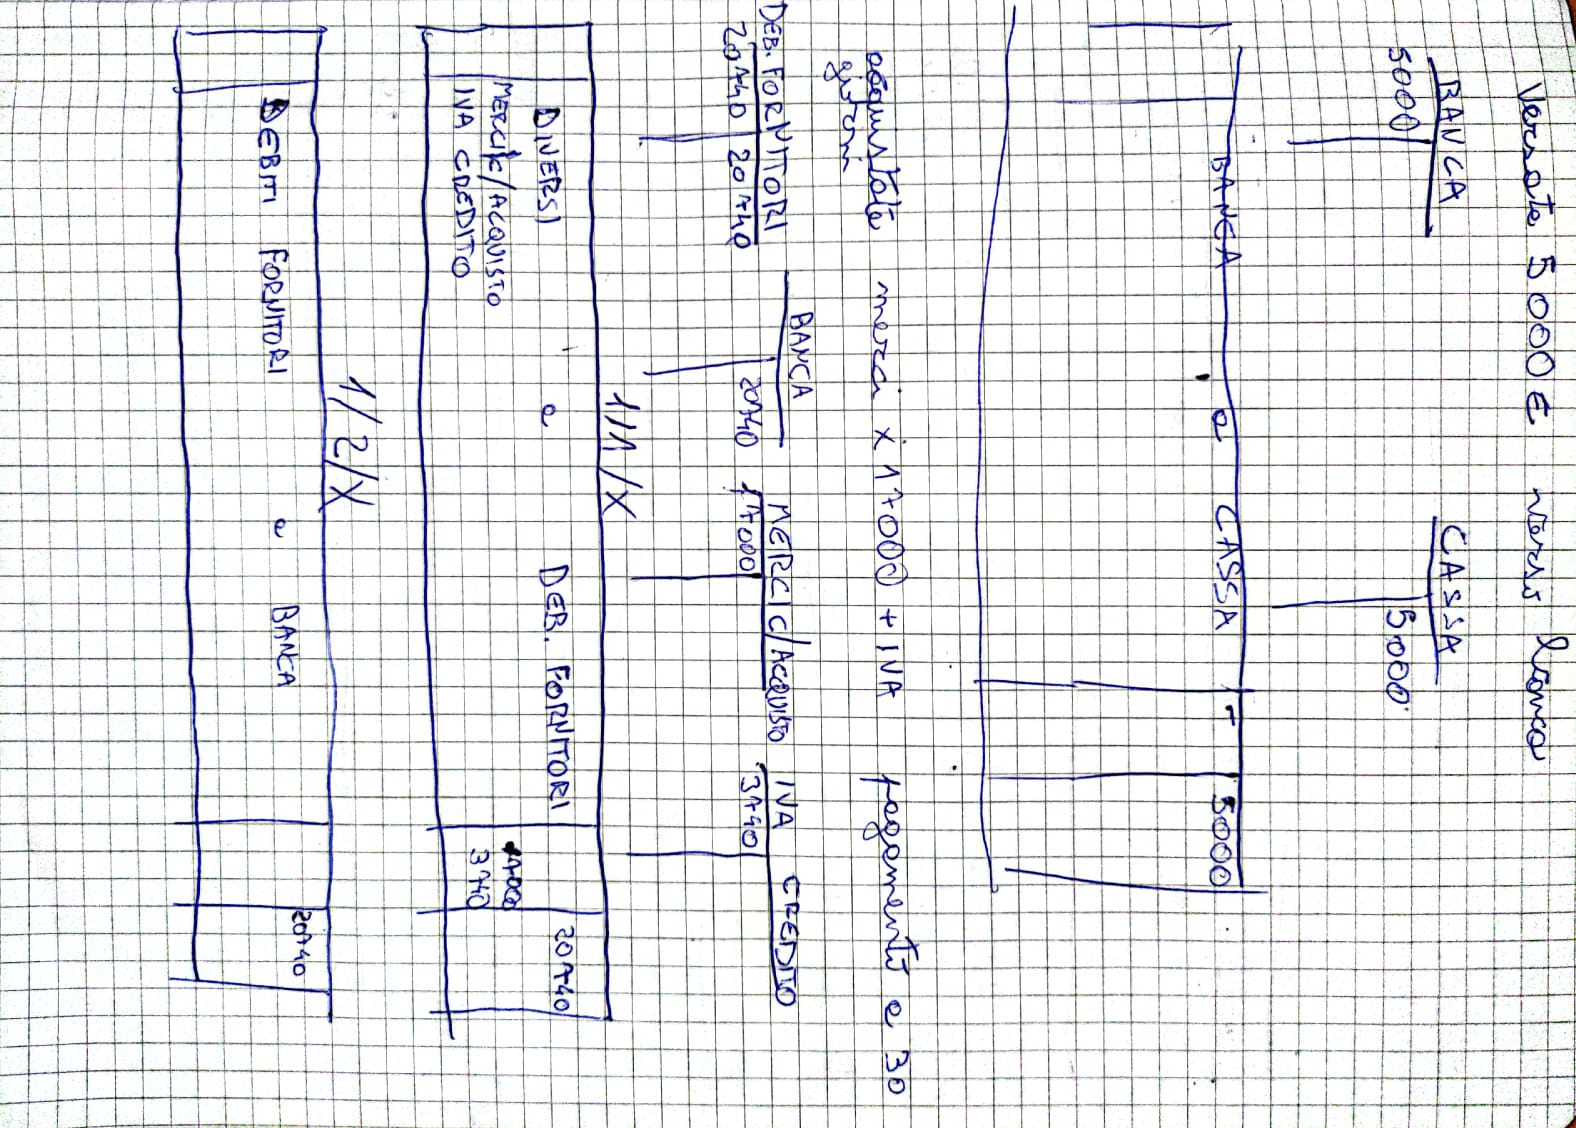 Versate 5000 € verso banca
BANCA CASSA
5000 5000
BANCA a CASSA - 5000
acquistate merci x 17000 + IVA pagamento a 30
giorni
DEB. FORNITORI BANCA MERCI C/ACQUISTO IVA CREDITO
20740 20740 20740 17000 3740
1/1/X
DIVERSI a DEB. FORNITORI 20740
MERCI C/ACQUISTO 17000
IVA CREDITO 3740
1/2/X
DEBITI FORNITORI a BANCA 20740